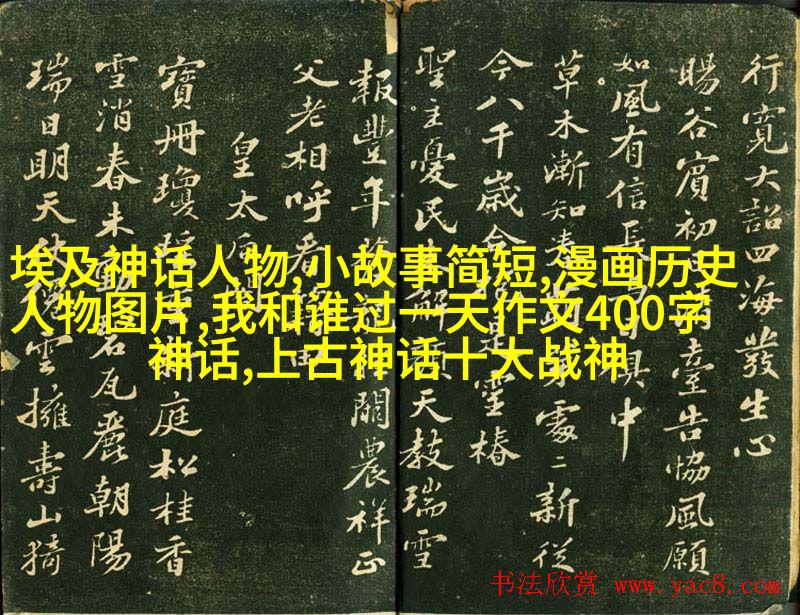 行寬大詔四海發生心
暘谷賓初日臺告協風願
如風有信長日俱中
草木漸知春處〻新從
今八千歲合是靈椿
聖主憂民解顏天教瑞雪
報豐年闕農祥正
父老相呼看田
皇太后閣
寶冊瓊庭松桂香
雪消春未動碧瓦麗朝陽
瑞日明天仗雲擁壽山猗
埃及神话人物,小故事简短,漫画历史
人物图片,我和谁过一天作文400字
神话,上古神话十大战神
书法欣赏 www.yac8.com